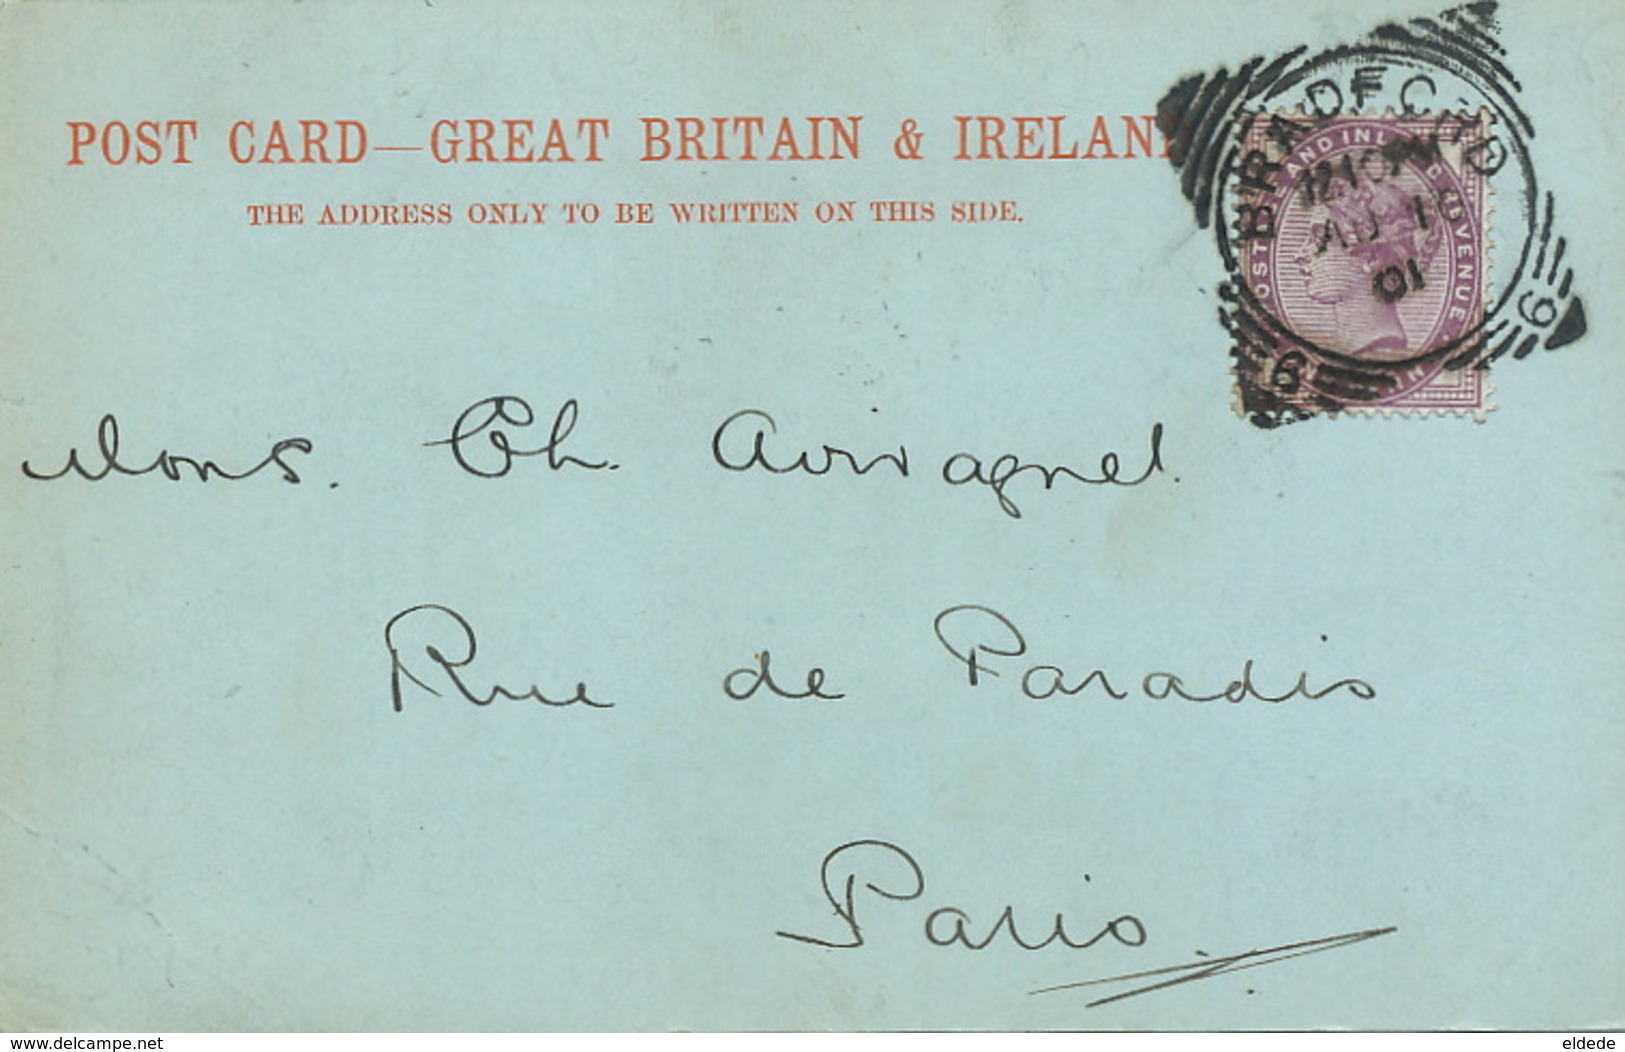 POST CARD—GREAT BRITAIN & IRELAND
THE ADDRESS ONLY TO BE WRITTEN ON THIS SIDE.
BRADFORD
12 10 PM
AU 16
01
9
9
POSTAGE AND INLAND REVENUE
Mons. Ch. Aviragnet.
Rue de Paradis
Paris
www.delcampe.net
eldede